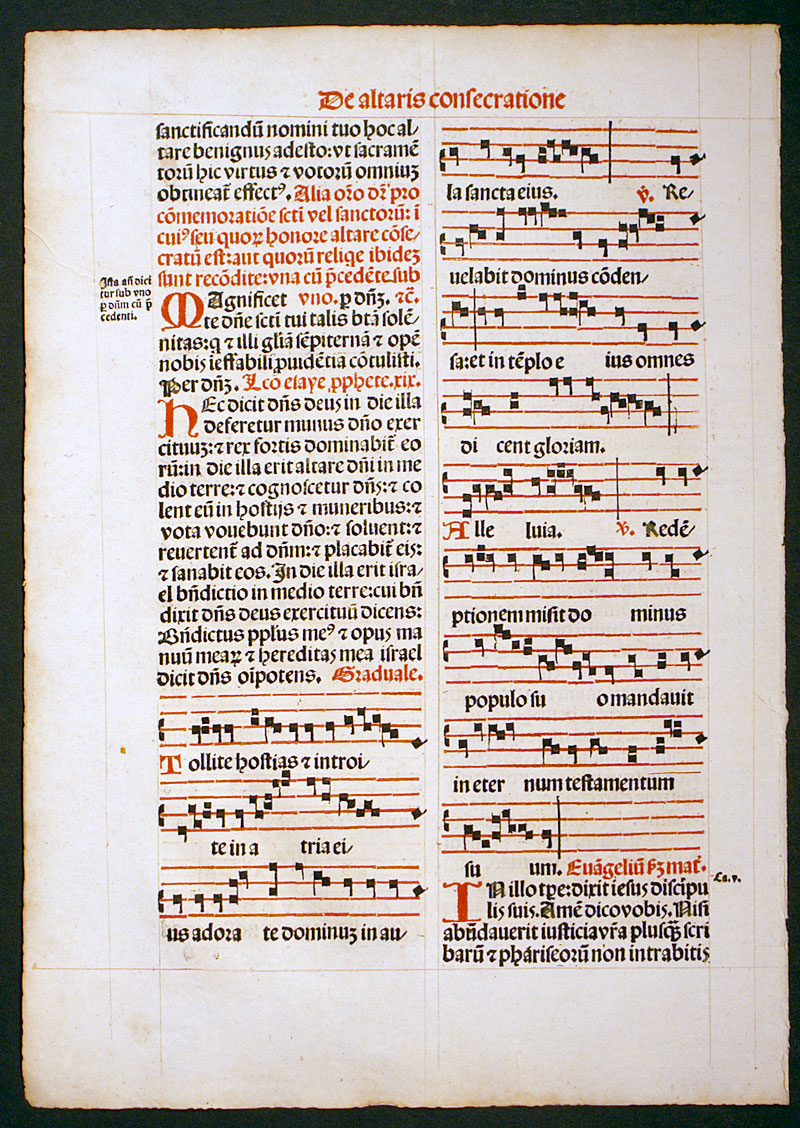 De altaris consecratione
sanctificandū nomini tuo hoc al⸗
tare benignus adesto: vt sacramē
torū hic virtus ⁊ votorū omniuꝫ
obtineat̄ effectꝰ. Alia orō dr̄ pro
cōmemoratiōe scti vel sanctorū: ī
cuiꝰ seu quoꝝ honore altare cōse⸗
cratū est: aut quorū reliqe ibidez
sunt recōdite: vna cū p̄cedēte sub
Ista añ dici
tur sub vno
ꝑ dn̄m cū p̄
cedenti.
MAgnificet vno. ꝑ dn̄ꝫ. ⁊c̄.
te dn̄e scti tui talis btā solē⸗
nitas: q ⁊ illi gliā sēpiternā ⁊ opē
nobis īeffabili ꝓuidētia cōtulisti.
Per dn̄ꝫ. Lcō esaye ꝓphete. xix.
HEc dicit dn̄s deus in die illa
deferetur munus dn̄o exer
cituuꝫ: ⁊ rex fortis dominabit̄ eo
rū: in die illa erit altare dn̄i in me
dio terre: ⁊ cognoscetur dn̄s: ⁊ co
lent eū in hostijs ⁊ muneribus: ⁊
vota vouebunt dn̄o: ⁊ soluent: ⁊
reuertent̄ ad dn̄m: ⁊ placabit̄ eis:
⁊ sanabit eos. In die illa erit isra⸗
el bn̄dictio in medio terre: cui bn̄
dixit dn̄s deus exercituū dicens:
Bn̄dictus ppl̄us meꝰ ⁊ opus ma
nuū meaꝝ ⁊ hereditas mea israel
dicit dn̄s oīpotens. Graduale.
Tollite hostias ⁊ introi⸗
te in a tria ei⸗
us adora te dominuꝫ in au⸗
la sancta eius. ℣. Re⸗
uelabit dominus cōden⸗
sa: et in tēplo e ius omnes
di cent gloriam.
Alle luia. ℣. Redē⸗
ptionem misit do minus
populo su o mandauit
in eter num testamentum
su um. Euāgeliū ẜꝫ mat̄.
IN illo tp̄e: dixit iesus discipu
lis suis. Amē dico vobis. Nisi
Ca. v.
abūdauerit iusticia vr̄a plusꝗ̄ scri
barū ⁊ phariseorū non intrabitis